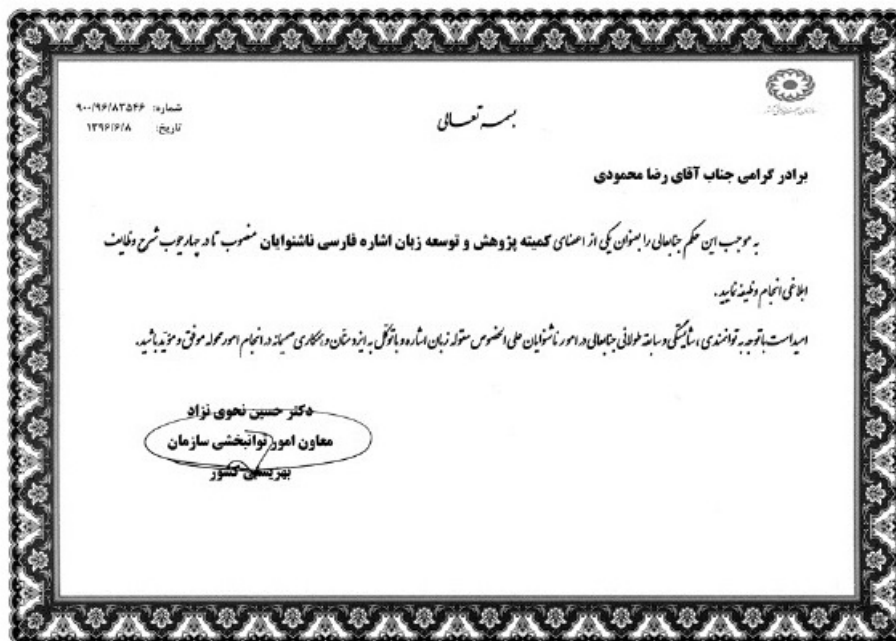 سازمان بهزیستی کشور
شماره: ۹۰۰/۹۶/۸۳۵۴۶
تاریخ: ۱۳۹۶/۶/۸
بسمه تعالی
برادر گرامی جناب آقای رضا محمودی
به موجب این حکم جنابعالی را بعنوان یکی از اعضای کمیته پژوهش و توسعه زبان اشاره فارسی ناشنوایان منصوب تا در چهارچوب شرح وظایف
ابلاغی انجام وظیفه نمایید.
امید است با توجه به توانمندی، شایستگی و سابقه طولانی جنابعالی در امور ناشنوایان علی الخصوص مقوله زبان اشاره و با توکل به ایزد منان و همکاری صمیمانه در انجام امور محوله موفق و مؤید باشید.
دکتر حسین نحوی نژاد
معاون امور توانبخشی سازمان
بهزیستی کشور